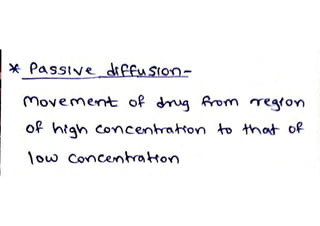 * Passive diffusion-
Movement of drug from region
of high concentration to that of
low concentration